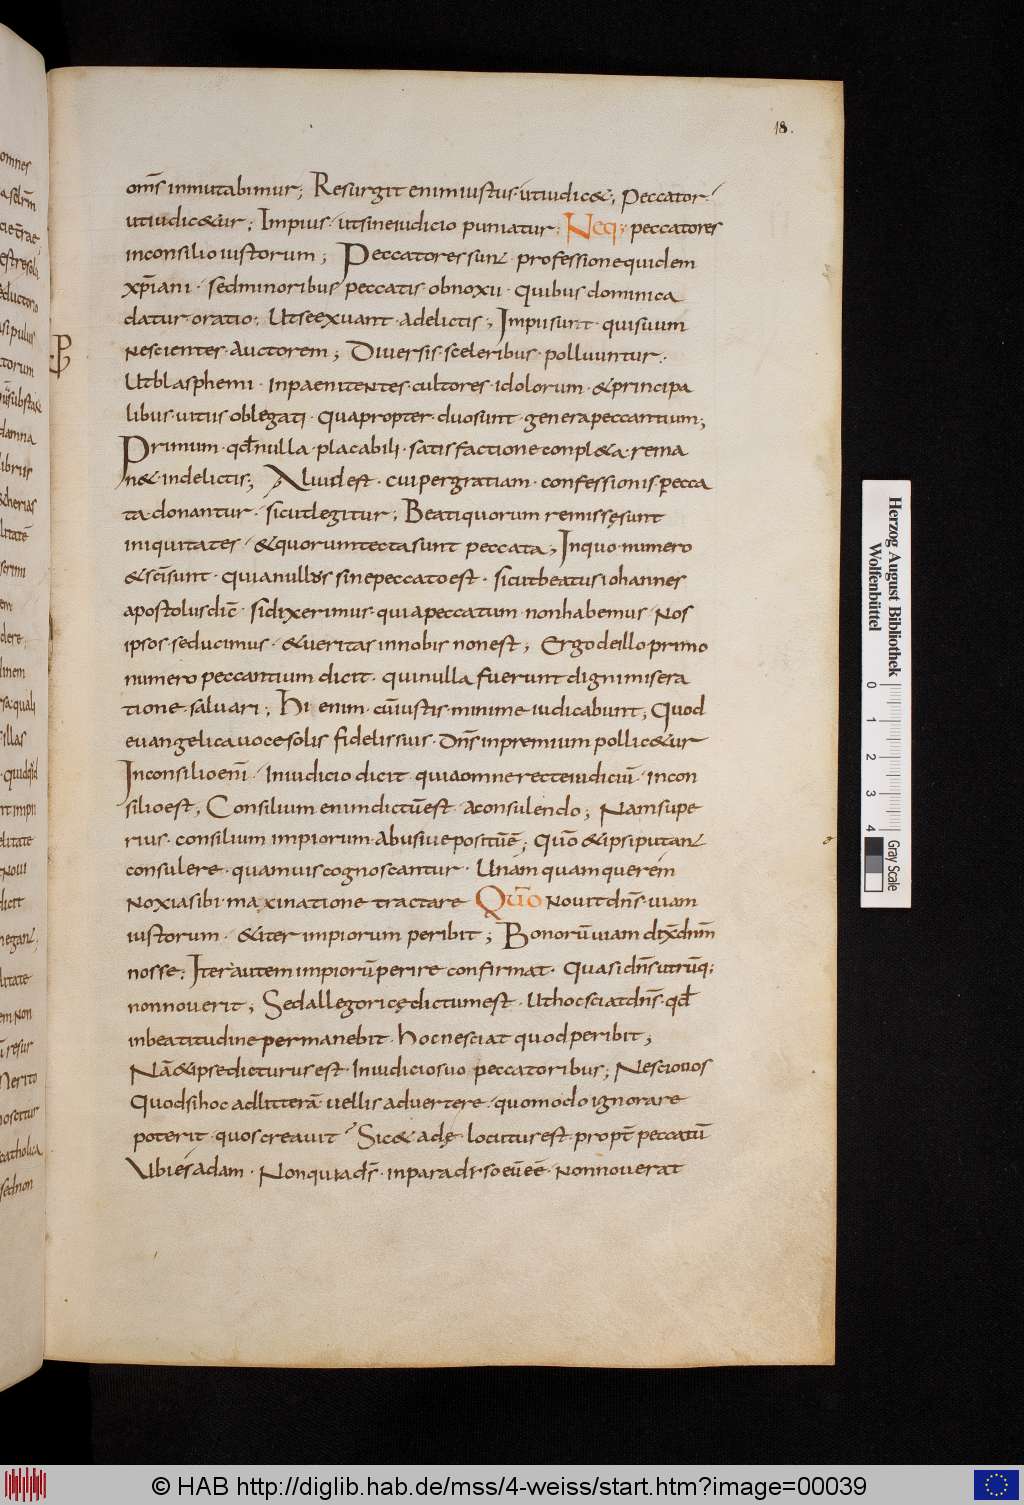 18.
om̅s inmutabimur; Resurgit enim iustus · ut iudic&; Peccator ·
ut iudic&ur; Impius · ut sine iudicio puniatur: Neq; peccatores
in consilio iustorum; Peccatores sunt · professione quidem
xp̅iani · sed minoribus peccatis obnoxii · quibus dominica
datur oratio; Ut se exuant · a delictis; Impii sunt · qui suum
nescientes · auctorem; Diversis · sceleribus · polluuntur ·
Ut blasphemi · inpaenitentes · cultores · idolorum · & principa
libus · vitiis oblegati · quapropter · duo sunt · genera peccantium;
Primum · qđ nulla · placabili · satisfactione conpl&a · rema
n& · in delictis; Aliud est · cui per gratiam · confessionis · pecca
ta donantur · sicut legitur; Beati quorum remissę sunt
iniquitates · & quorum tecta sunt peccata; In quo numero
& sc̅i sunt · quia nullus sine peccato est · sicut beatus iohannes
apostolus dic̅ · si dixerimus · quia peccatum non habemus · nos
ipsos · seducimus · & veritas in nobis non est; Ergo de illo primo
numero peccantium dicit · qui nulla fuerunt digni misera
tione · salvari; Hi enim · cu̅ iustis · minime iudicabunt; Quod
evangelica voce solis fidelis suis · dn̅s in premium pollic&ur
In consilio eni̅ · In iudicio dicit · quia omne recte iudiciu̅ · in con
silio est; Consilium enim dictu̅ est · a consulendo; Nam supe
rius · consilium impiorum · abusive positu̅ e̅; Quo̅ & ipsi putant
consulere · quamvis cognoscantur · Unam quamque rem
noxia sibi maxinatione tractare Quo̅ novit dn̅s · viam
iustorum · & iter impiorum peribit; Bonoru̅ viam dix̅ dn̅m
nosse; Iter autem impioru̅ perire confirmat · Quasi dn̅s utru̅q;
non noverit; Sed allegoricę dictum est · Ut hoc sciat dn̅s · qđ
in beatitudine permanebit · hoc nesciat quod peribit;
Na̅ & ipse dicturus est · In iudicio suo peccatoribus; Nescio vos
Quod si hoc ad littera̅ vellis advertere · quomodo ignorare
poterit · quos creavit? Sic & adę · locutus est · propt̅ peccatu̅
Ubi es adam · Non quia dn̅s · in paradiso eu̅ e̅e̅ · non noverat
Herzog August Bibliothek
Wolfenbüttel
0 1 2 3 4
Gray Scale
© HAB http://diglib.hab.de/mss/4-weiss/start.htm?image=00039